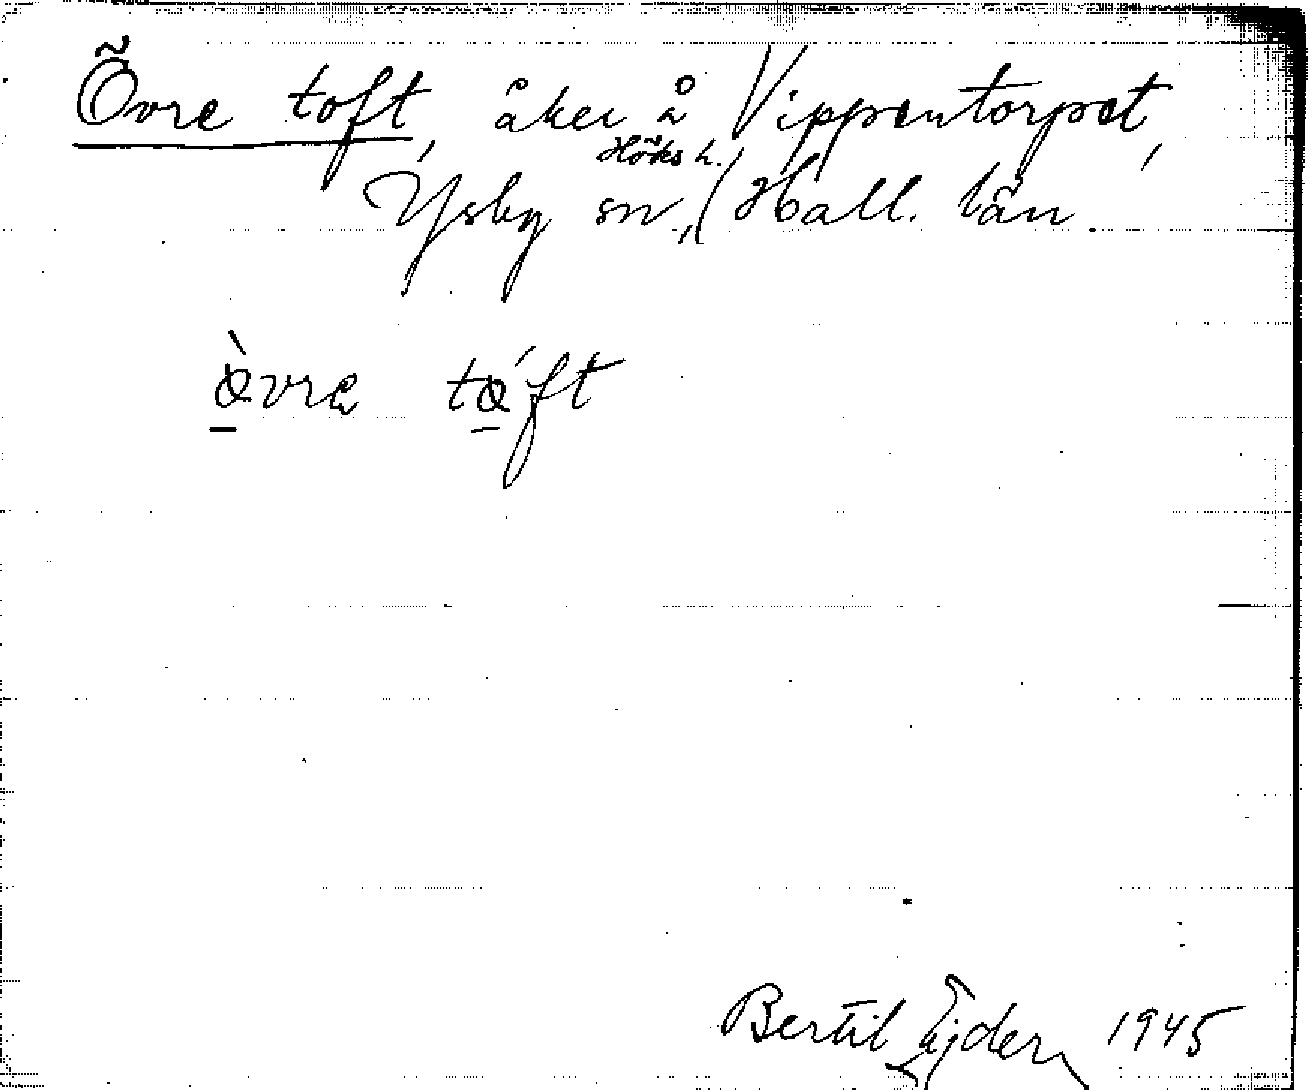 Övre toft, åker å Vippentorpet,
Ysby sn, Höks h. Hall. län
òvre tóft
Bertil Ejder 1945